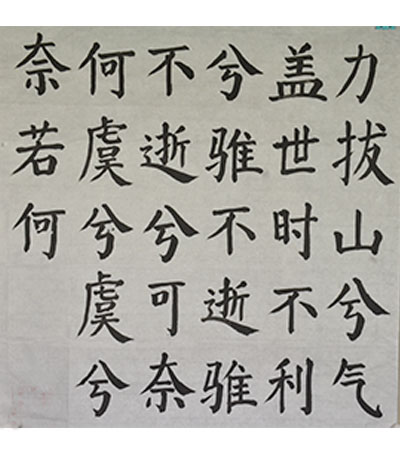 力拔山兮气
盖世时不利
兮骓不逝骓
不逝兮可奈
何虞兮虞兮
奈若何